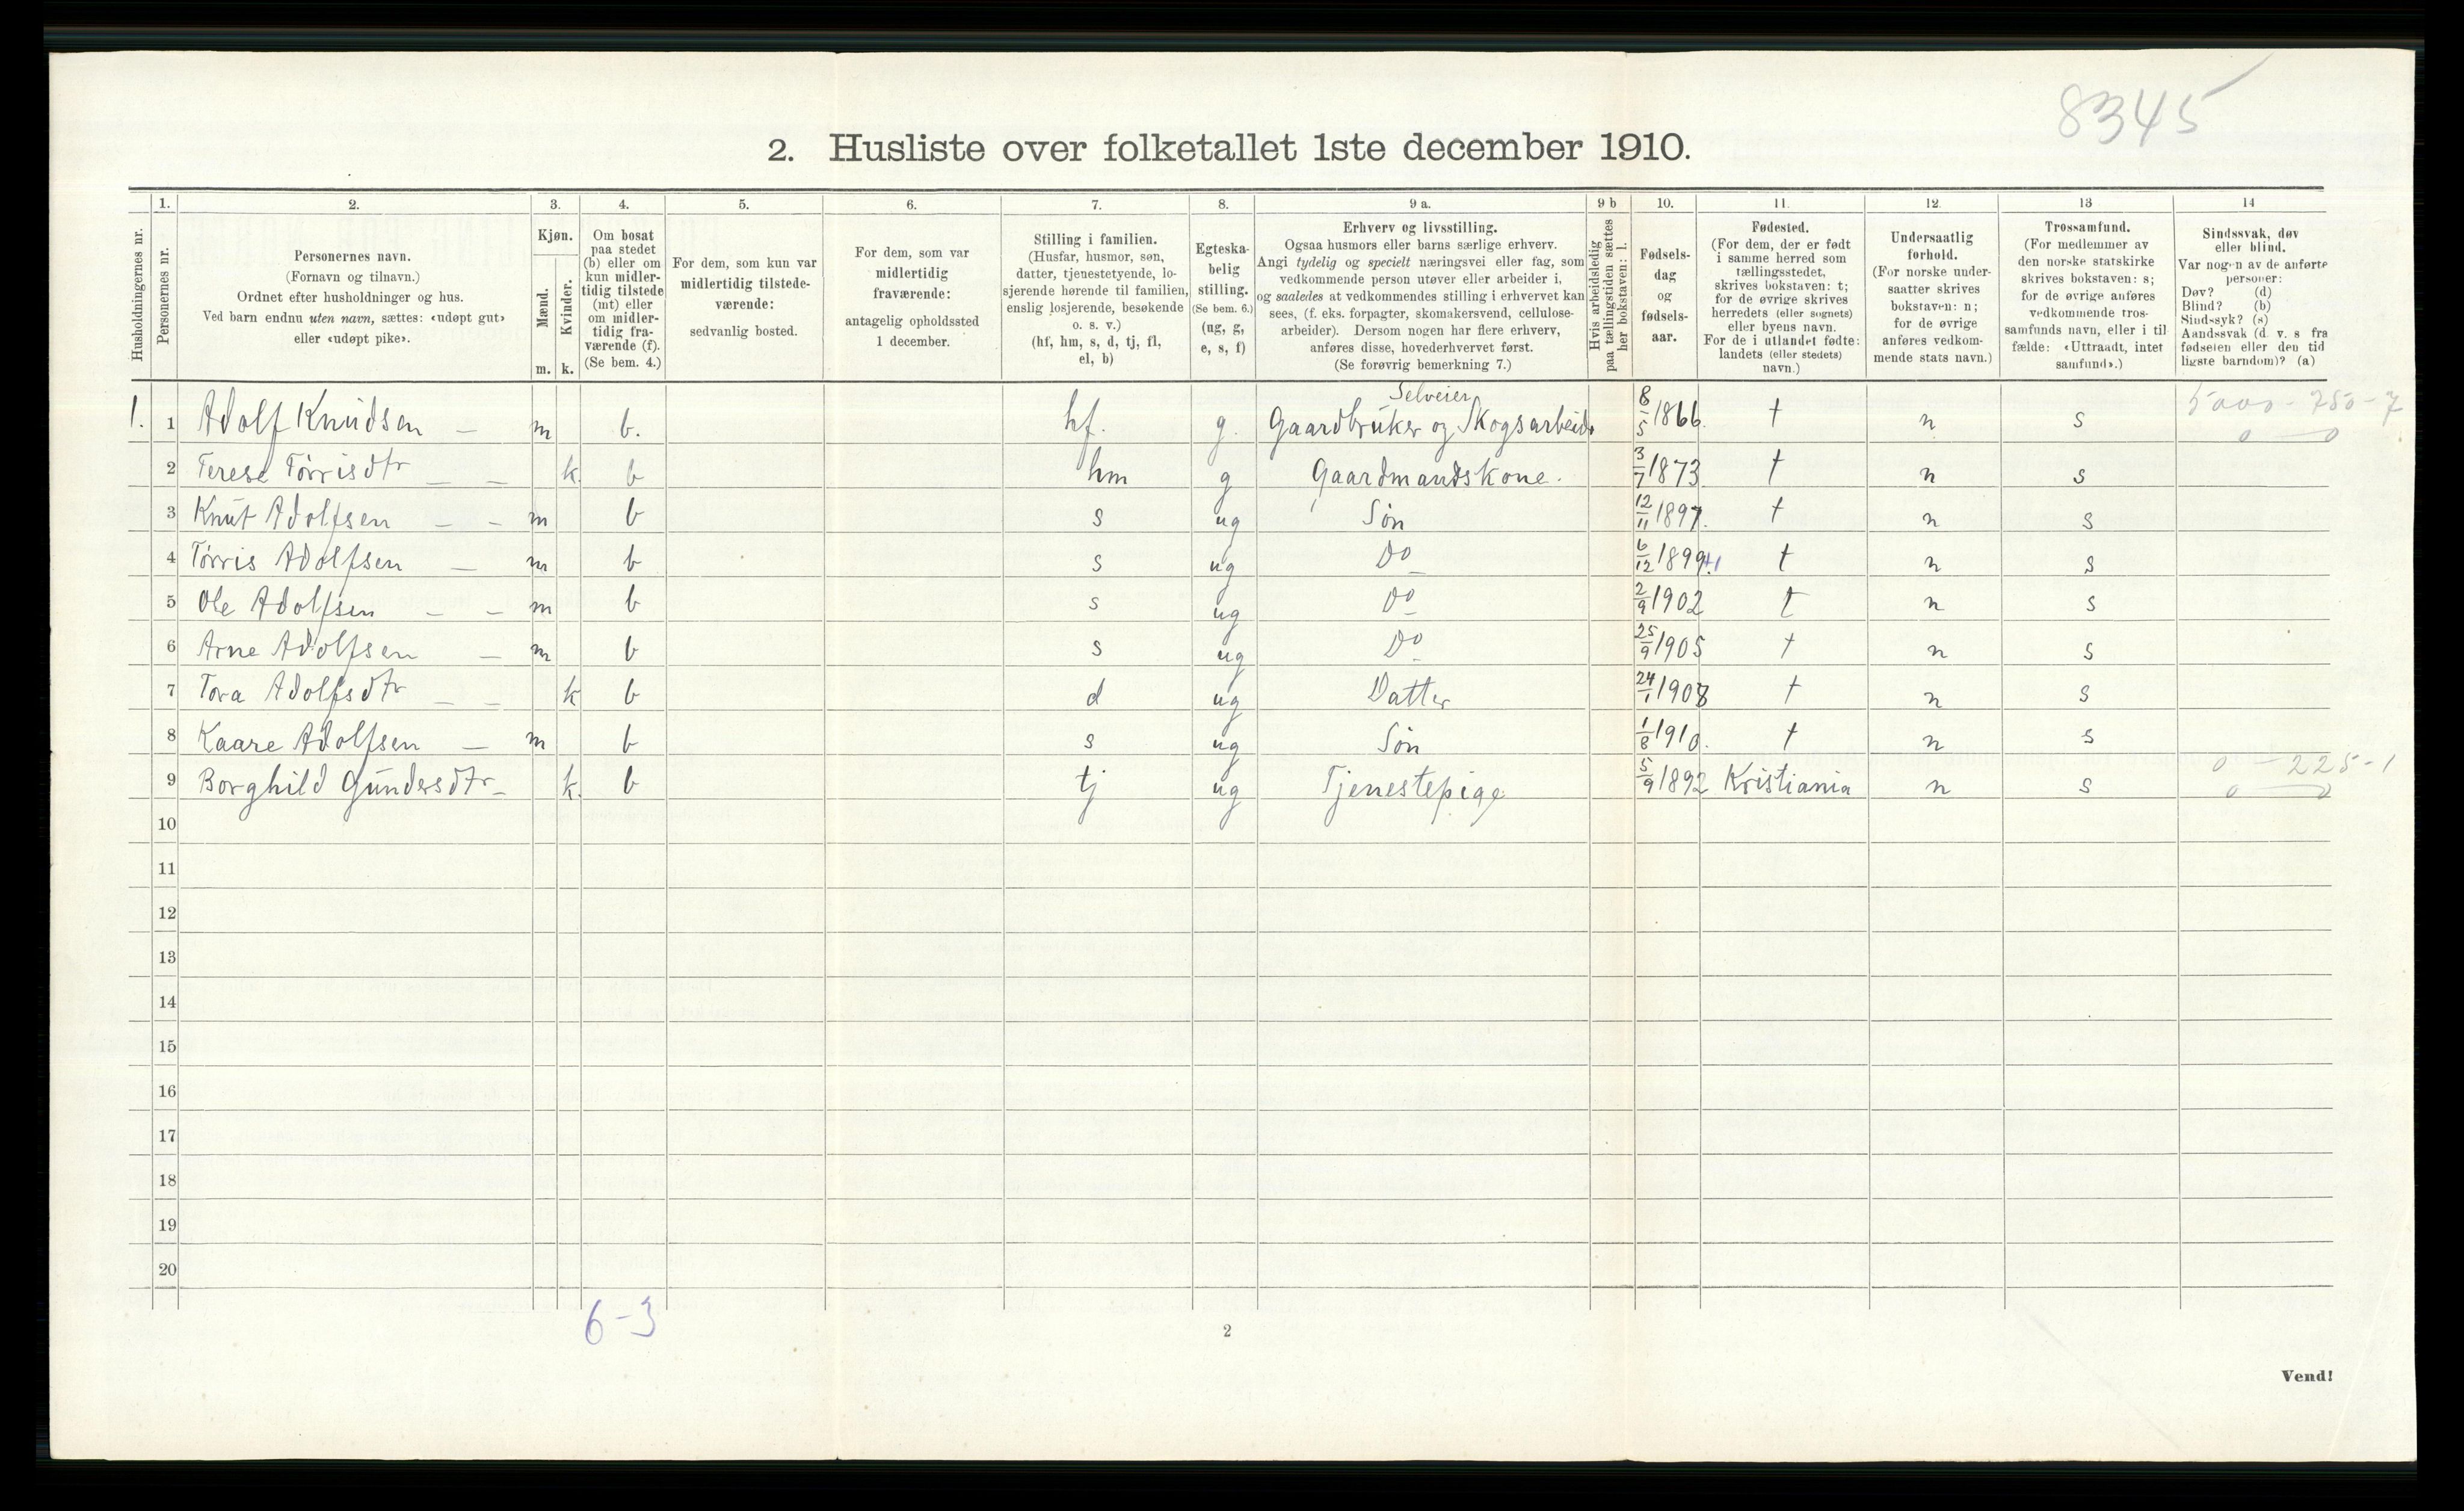 8345
2. Husliste over folketallet 1ste december 1910.
1. 2. 3. 4. 5. 6. 7. 8. 9 a. 9 b 10. 11. 12. 13 14
Husholdningernes nr.
Personernes nr.
Personernes navn.
(Fornavn og tilnavn.)
Ordnet efter husholdninger og hus.
Ved barn endnu uten navn, sættes: «udøpt gut»
eller «udøpt pike».
Kjøn.
Mænd.
Kvinder.
m. k.
Om bosat
paa stedet
(b) eller om
kun midler-
tidig tilstede
(mt) eller
om midler-
tidig fra-
værende (f).
(Se bem. 4.)
For dem, som kun var
midlertidig tilstede-
værende:
sedvanlig bosted.
For dem, som var
midlertidig
fraværende:
antagelig opholdssted
1 december.
Stilling i familien.
(Husfar, husmor, søn,
datter, tjenestetyende, lo-
sjerende hørende til familien,
enslig losjerende, besøkende
o. s. v.)
(hf, hm, s, d, tj, fl,
el, b)
Egteska-
belig
stilling.
(Se bem. 6.)
(ug, g,
e, s, f)
Erhverv og livsstilling.
Ogsaa husmors eller barns særlige erhverv.
Angi tydelig og specielt næringsvei eller fag, som
vedkommende person utøver eller arbeider i,
og saaledes at vedkommendes stilling i erhvervet kan
sees, (f. eks. forpagter, skomakersvend, cellulose-
arbeider). Dersom nogen har flere erhverv,
anføres disse, hovederhvervet først.
(Se forøvrig bemerkning 7.)
Hvis arbeidsledig
paa tællingstiden sættes
her bokstaven: l.
Fødsels-
dag
og
fødsels-
aar.
Fødested.
(For dem, der er født
i samme herred som
tællingsstedet,
skrives bokstaven: t;
for de øvrige skrives
herredets (eller sognets)
eller byens navn.
For de i utlandet fødte:
landets (eller stedets)
navn.)
Undersaatlig
forhold.
(For norske under-
saatter skrives
bokstaven: n;
for de øvrige
anføres vedkom-
mende stats navn.)
Trossamfund.
(For medlemmer av
den norske statskirke
skrives bokstaven: s;
for de øvrige anføres
vedkommende tros-
samfunds navn, eller i til-
fælde: «Uttraadt, intet
samfund».)
Sindssvak, døv
eller blind.
Var nogen av de anførte
personer:
Døv? (d)
Blind? (b)
Sindssyk? (s)
Aandssvak (d. v. s. fra
fødselen eller den tid-
ligste barndom)? (a)
Selveier 5000 - 750 - 7
1. 1 Adolf Knudsen – m b. hf. g. Gaardbruker og Skogsarbeid. 8/5 1866. t n s 0 – 0
2 Terese Tørrisdtr – – k. b hm g Gaardmandskone. 3/7 1873 t n s
3 Knut Adolfsen – – m b s ug Søn 12/11 1897. t n s
4 Tørris Adolfsen – m b s ug Do 6/12 1899. t n s
5 Ole Adolfsen – – m b s ug Do 2/9 1902 t n s
6 Arne Adolfsen – m b s ug Do 25/9 1905 t n s
7 Tora Adolfsdtr – – k b d ug Datter 24/1 1908 t n s
8 Kaare Adolfsen – m b s ug Søn 1/8 1910. t n s
0 – 225 - 1
9 Borghild Gundersdtr – k. b tj ug Tjenestepige 5/9 1892 Kristiania n s 0 – 0
10
11
12
13
14
15
16
17
18
19
20
6-3
2
Vend!